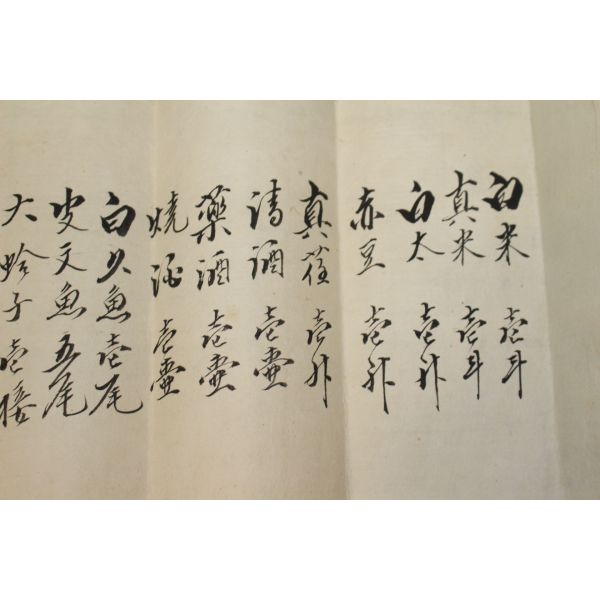 白米 壱斗
真米 壱斗
白太 壱升
赤豆 壱升
真荏 壱升
清酒 壱壷
藥酒 壱壷
燒酒 壱壷
白大魚壱尾
皮文魚五尾
大蛤子壱接